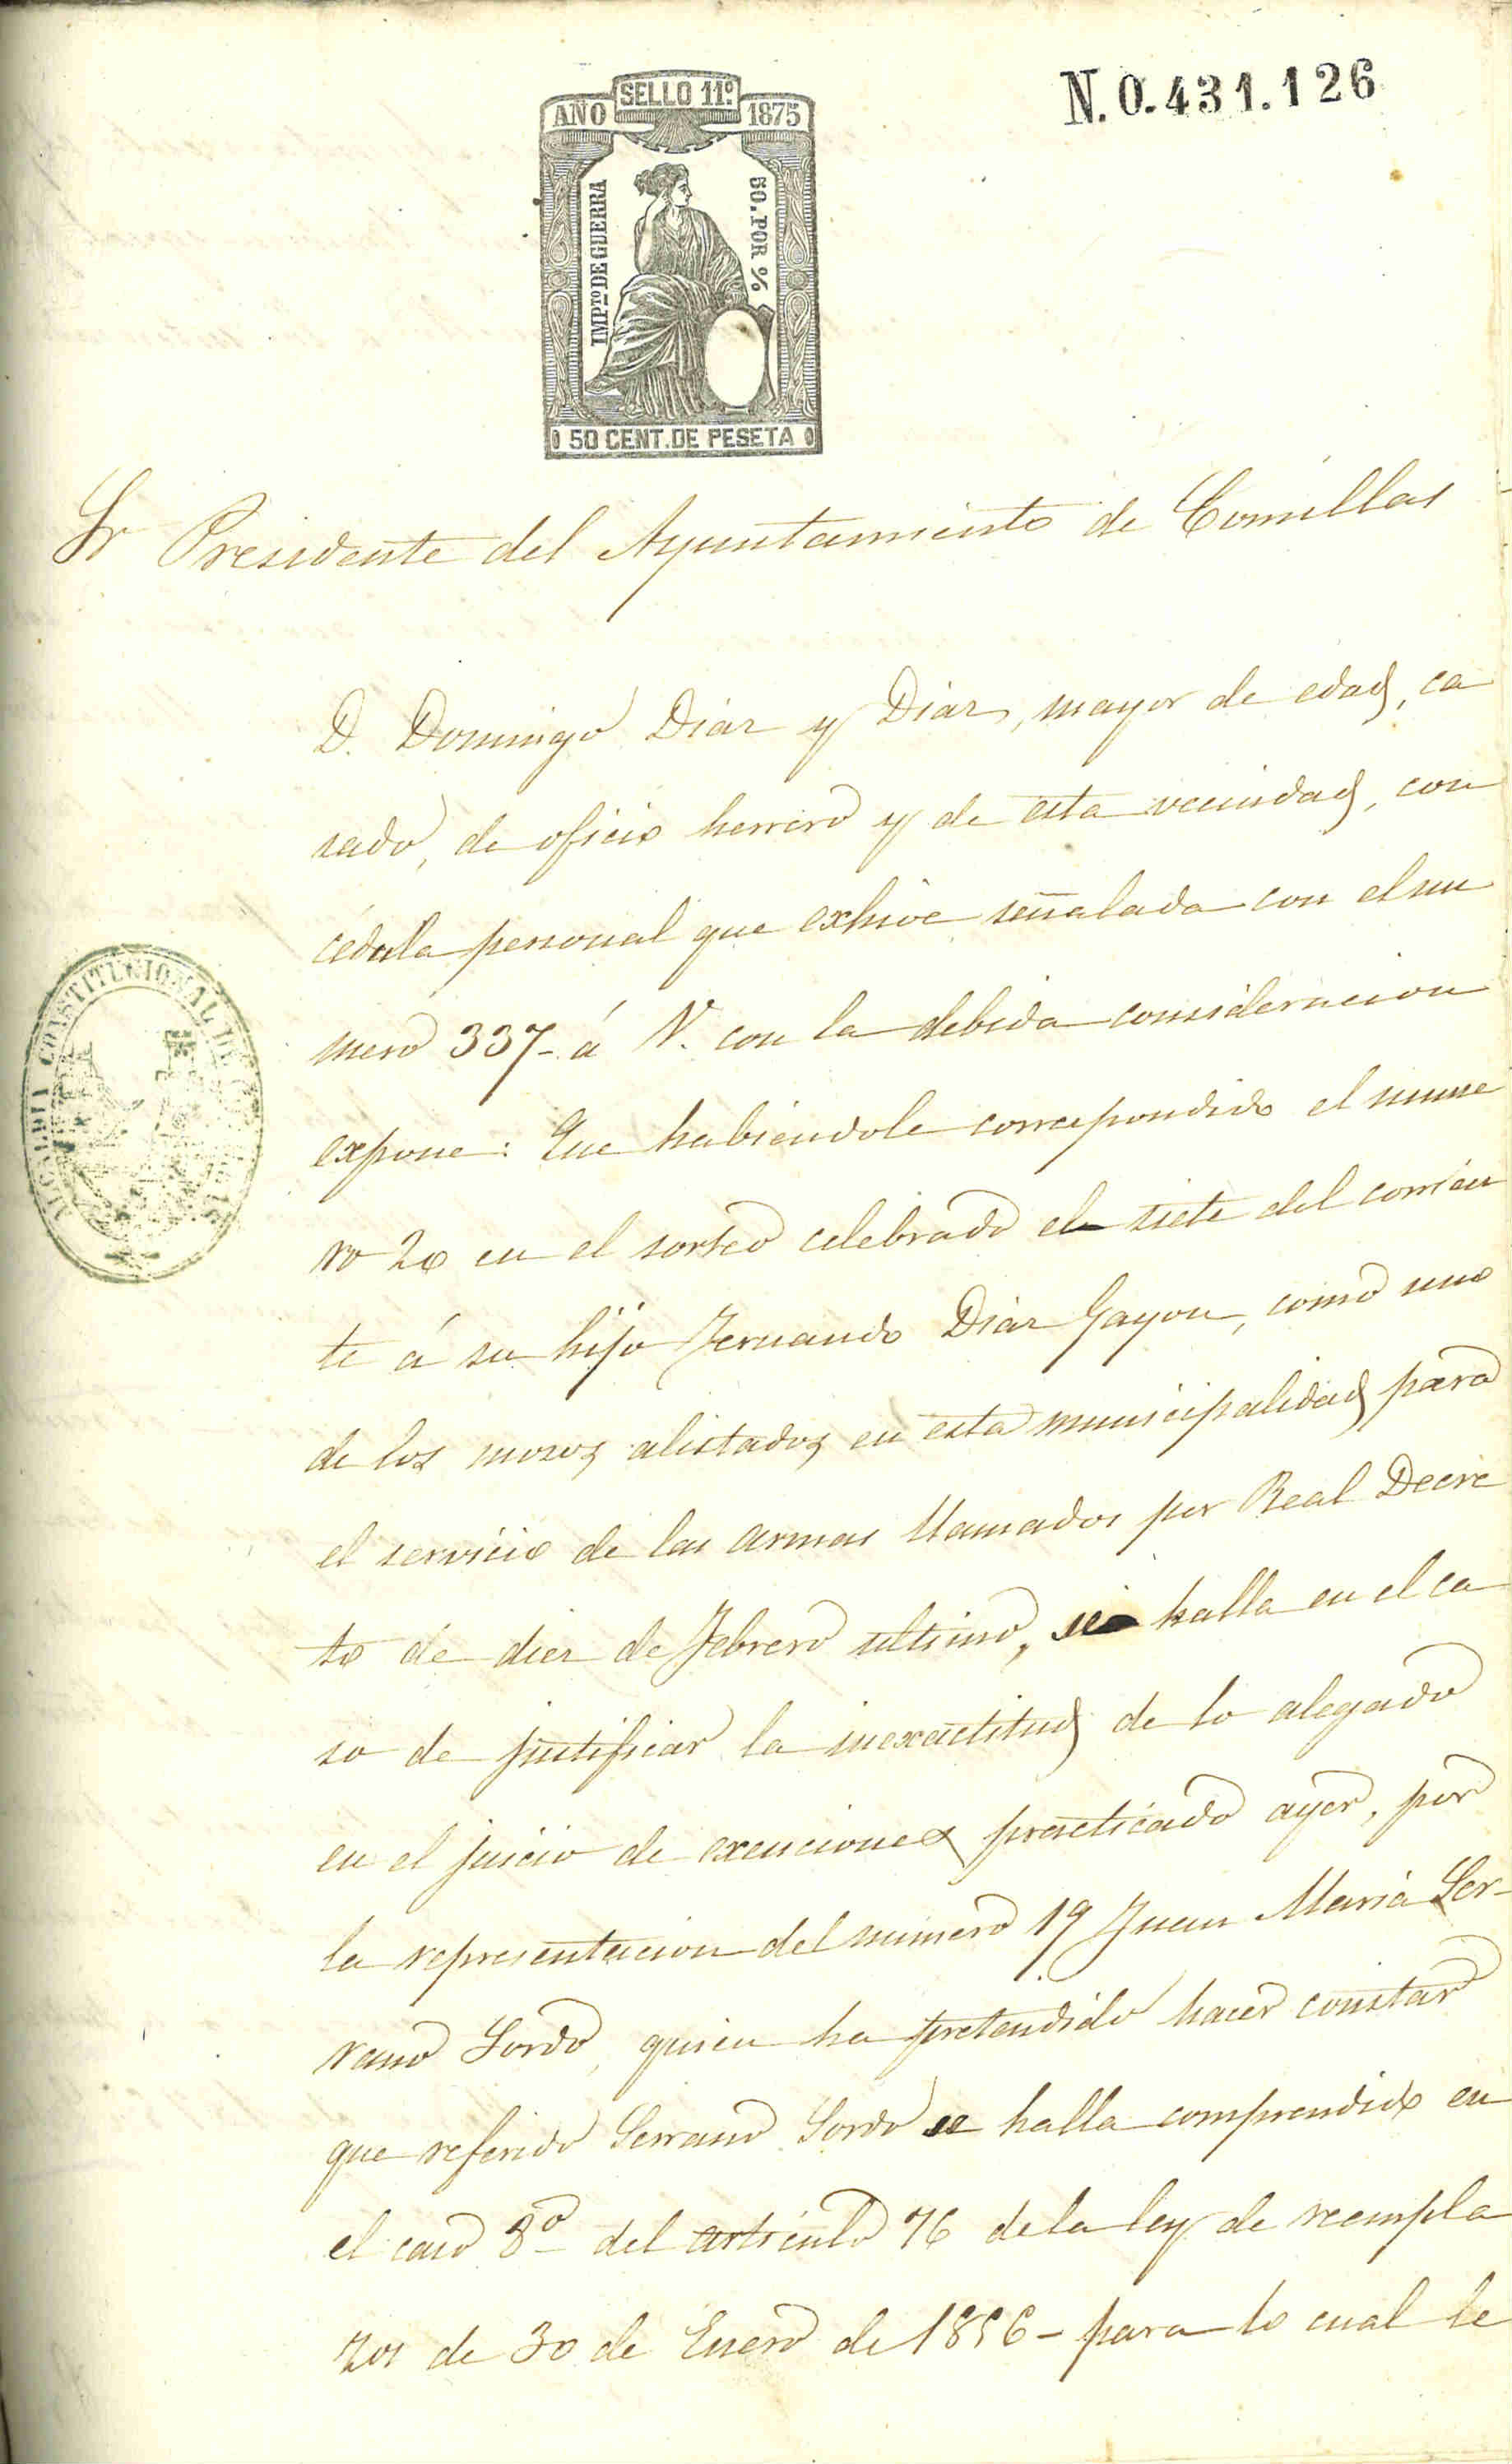 N. 0.431.126
SELLO 11º
AÑO 1875
IMPTO DE GUERRA
50. POR %
0 50 CENT. DE PESETA 0
Sr Presidente del Ayuntamiento de Comillas
D. Domingo Diaz y Diaz, mayor de edad, ca
sado, de oficio herrero y de esta vecindad, con
cédula personal que exhive señalada con el nu
mero 337- á V. con la debida consideracion
expone: Que habiendole correspondido el nume
ro 20 en el sorteo celebrado el siete del corrien
te á su hijo Fernando Diaz Gayon, como uno
de los mozos alistados en esta municipalidad para
el servicio de las armas llamados por Real Decre
to de diez de Febrero ultimo, se halla en el ca
so de justificar la inexactitud de lo alegado
en el juicio de exenciones practicado ayer, por
la representacion del numero 19 Juan Maria Ser-
rano Sordo, quien ha pretendido hacer constar
que referido Serrano Sordo se halla comprendido en
el caso 8º del articulo 76 de la ley de reempla
zos de 30 de Enero de 1856- para lo cual le
ALCALDIA CONSTITUCIONAL DE